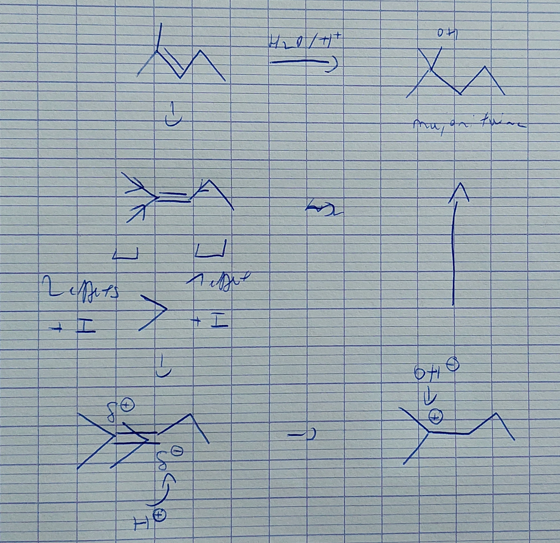 H2O/H+
OH
majoritaire
2 effets
+ I
>
1 effet
+ I
δ⊕
δ⊖
H⊕
OH⊖
⊕